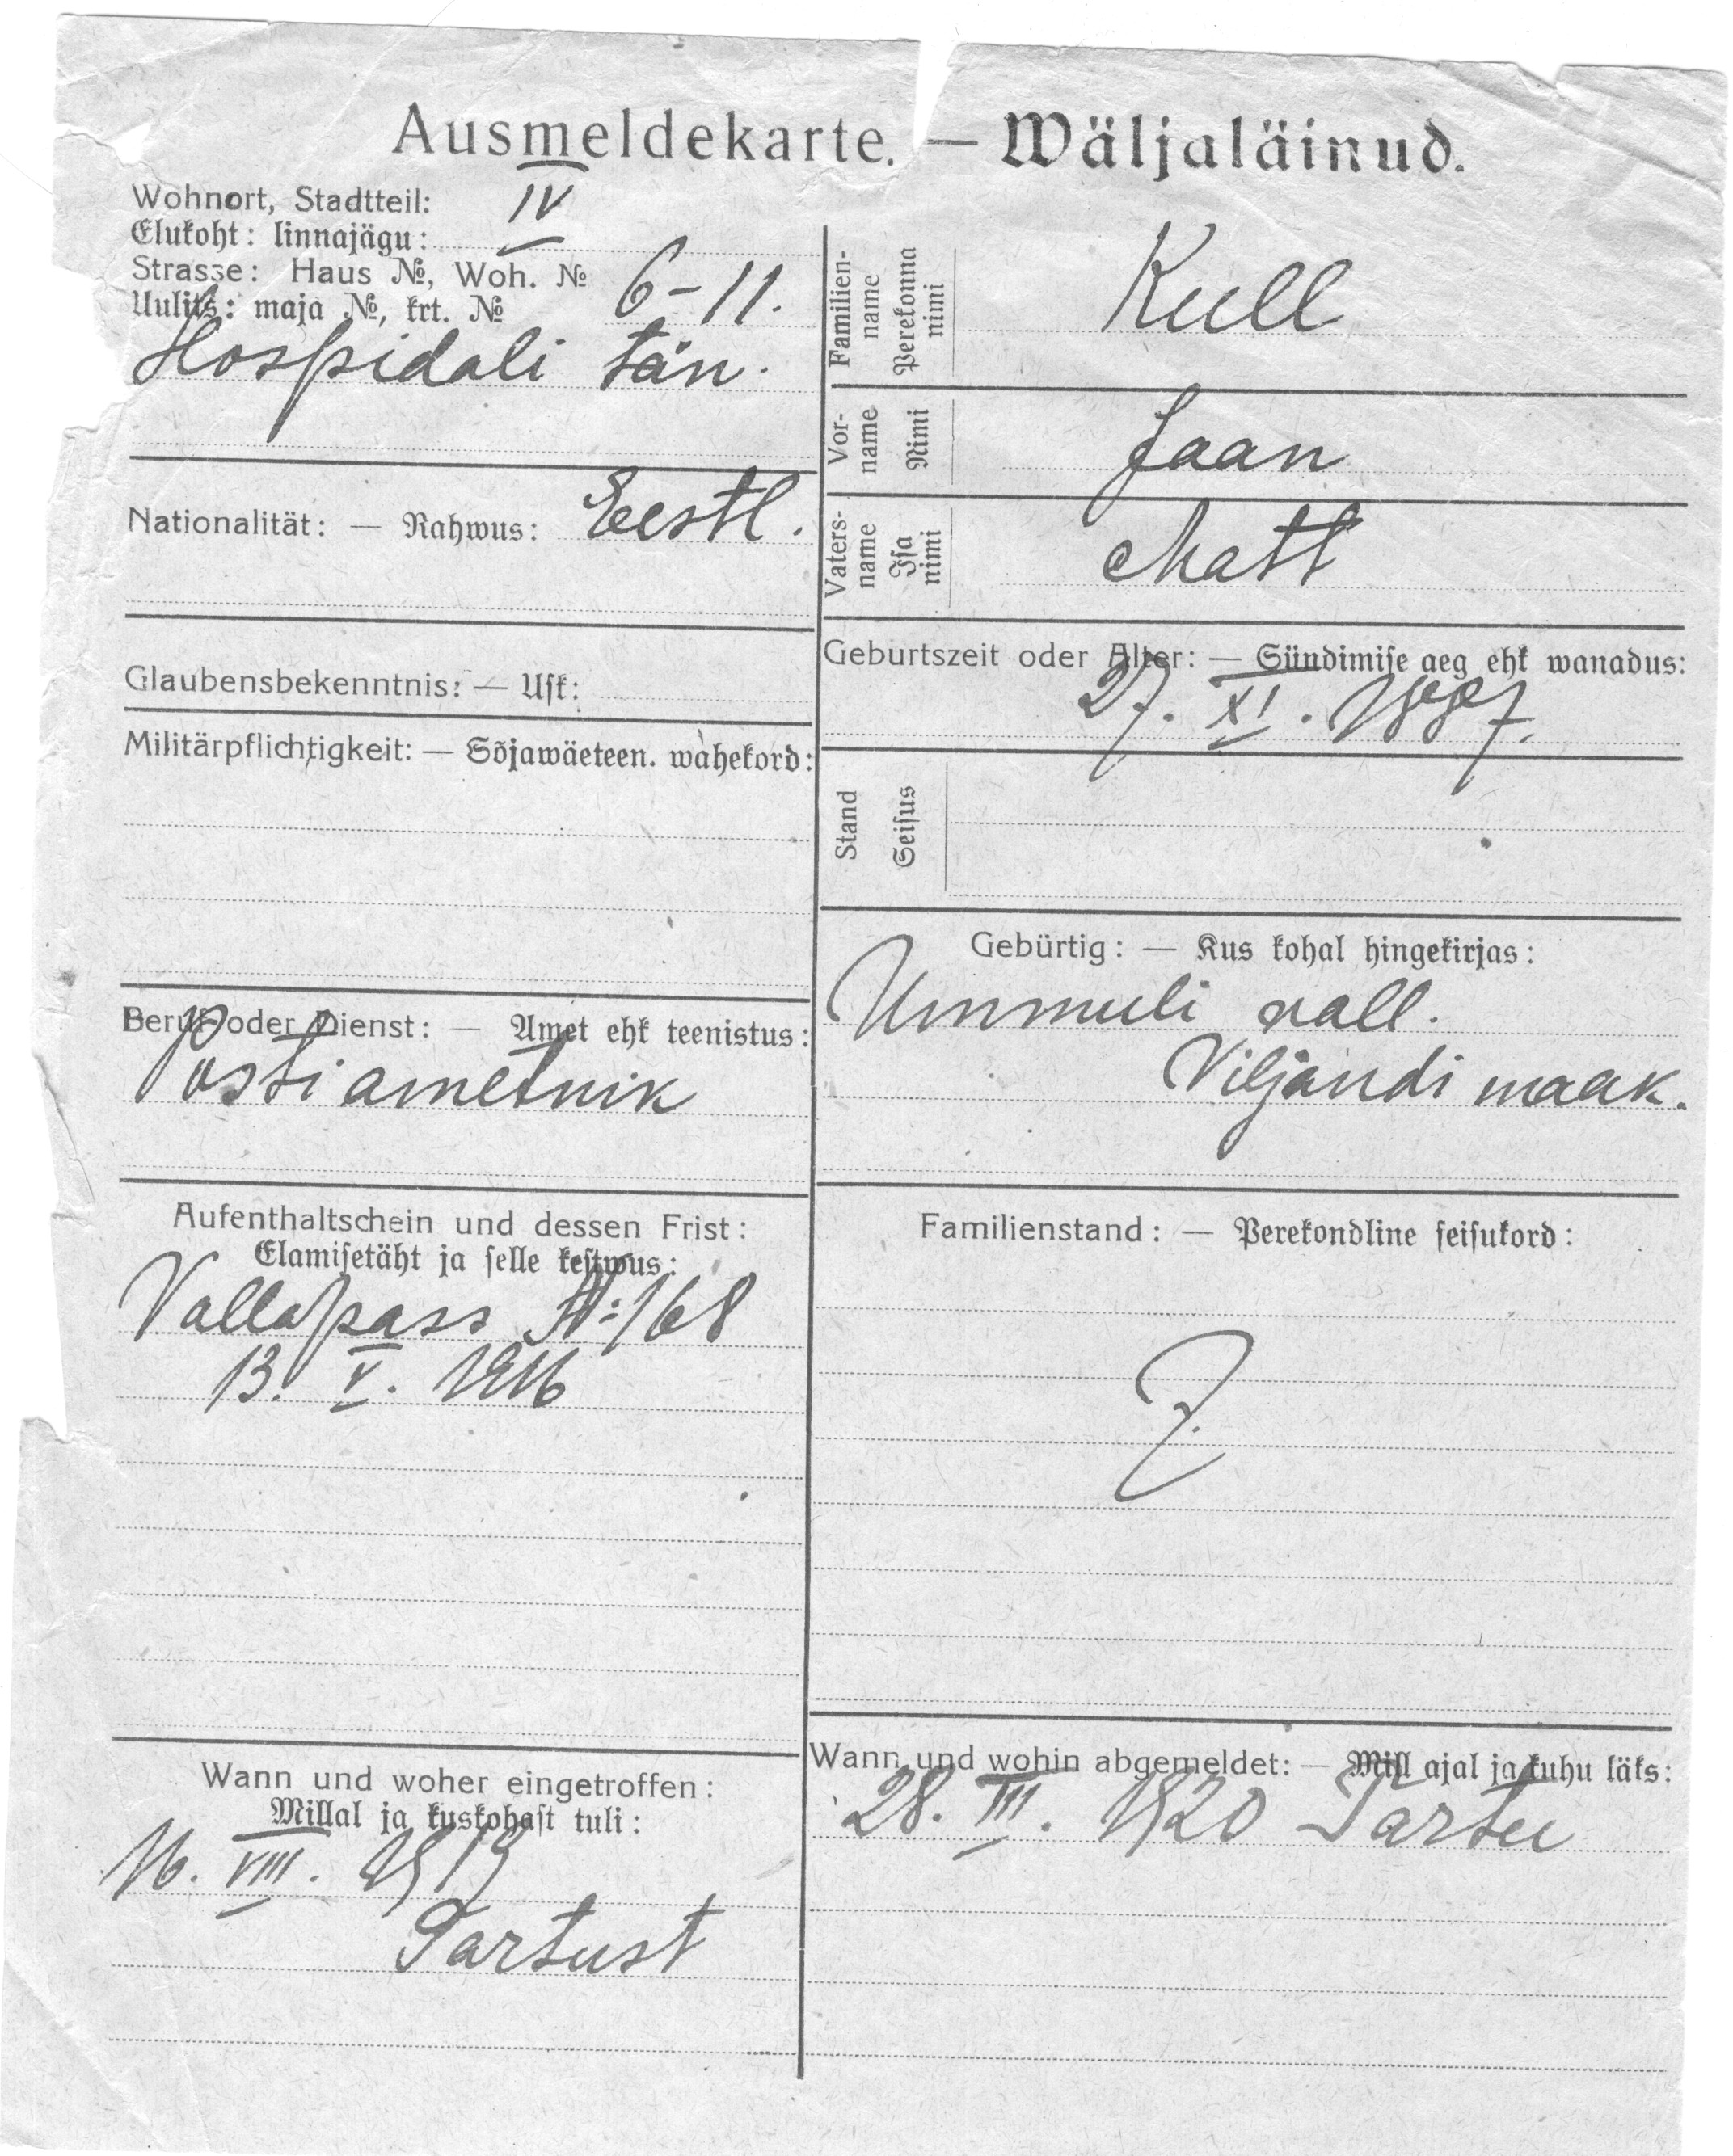 Ausmeldekarte. — Wäljaläinud.
Wohnort, Stadtteil: IV
Elukoht: linnajagu:
Strasse: Haus №, Woh. № 6-11.
Uulits: maja №, krt. №
Hospidali tän.
Nationalität: — Rahwus: Eestl.
Glaubensbekenntnis: — Usk:
Militärpflichtigkeit: — Sõjawäeteen. wahekord:
Beruf oder Dienst: — Amet ehk teenistus:
Postiametnik
Aufenthaltschein und dessen Frist:
Elamisetäht ja selle kestwus:
Vallapass №:168
13. V. 1916
Wann und woher eingetroffen:
Millal ja kuskohast tuli:
16. VIII. 1919
Tartust
Familien-
name
Perekonna
nimi
Kull
Vor-
name
Nimi
Jaan
Vaters-
name
Isa
nimi
Matt
Geburtszeit oder Alter: — Sündimise aeg ehk wanadus:
27. XI. 1887.
Stand
Seisus
Gebürtig: — Kus kohal hingekirjas:
Ummuli vall.
Viljandi maak.
Familienstand: — Perekondline seisukord:
Wann und wohin abgemeldet: — Mill ajal ja kuhu läks:
28. III. 1920 Tartu